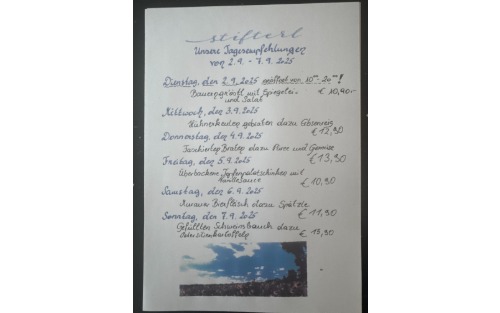 stifterl
Unsere Tagesempfehlungen
von 2.9. - 7.9. 2025
Dienstag, den 2.9.2025 geöffnet von 10⁰⁰-20⁰⁰!
Bauerngröstl mit Spiegelei € 10,90.-
und Salat
Mittwoch, den 3.9.2025
Hühnerkeulen gebraten dazu
€ 12,90
Donnerstag, den 4.9.2025
Faschierter Braten dazu Püree und Gemüse
€ 13,90
Freitag, den 5.9.2025
Überbackene Topfenpalatschinken mit
Vanillesauce € 10,90
Samstag, den 6.9.2025
Murauer Bierfleisch dazu Spätzle
€ 11,90
Sonntag, den 7.9.2025
Gefüllten Schweinsbauch dazu
€ 13,90